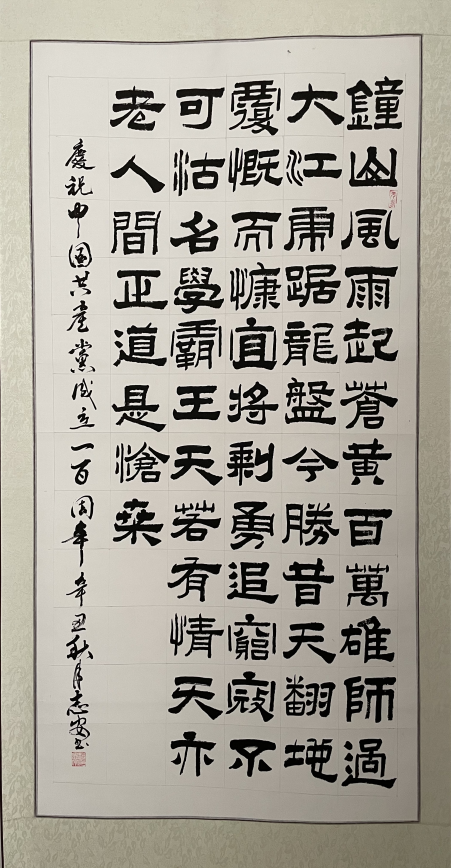 鐘山風雨起蒼黄百萬雄師過
大江虎踞龍盤今勝昔天翻地
覆慨而慷宜將剩勇追窮寇不
可沽名學霸王天若有情天亦
老人間正道是滄桒
慶祝中國共産黨成立一百周年辛丑秋月志安書